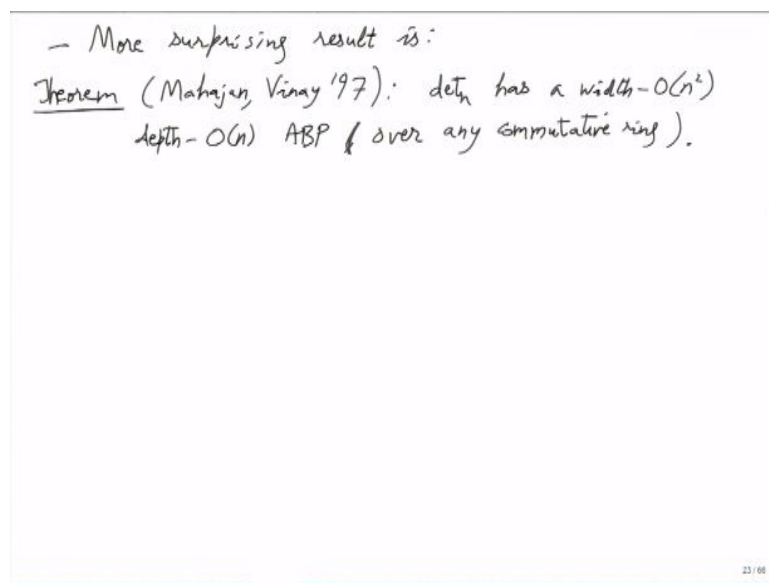 - More surprising result is:
Theorem (Mahajan, Vinay '97): detₙ has a width-O(n²)
depth-O(n) ABP ( over any commutative ring ).
23 / 66